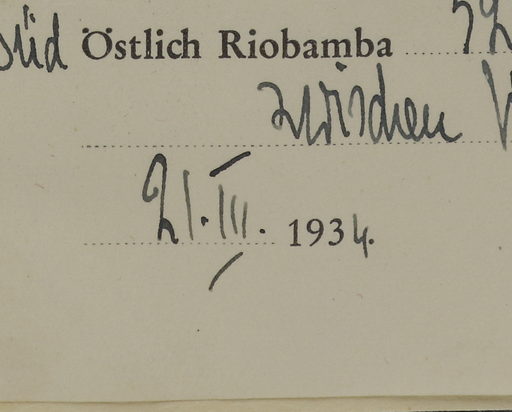 süd Östlich Riobamba
zwischen
21. III. 1934.